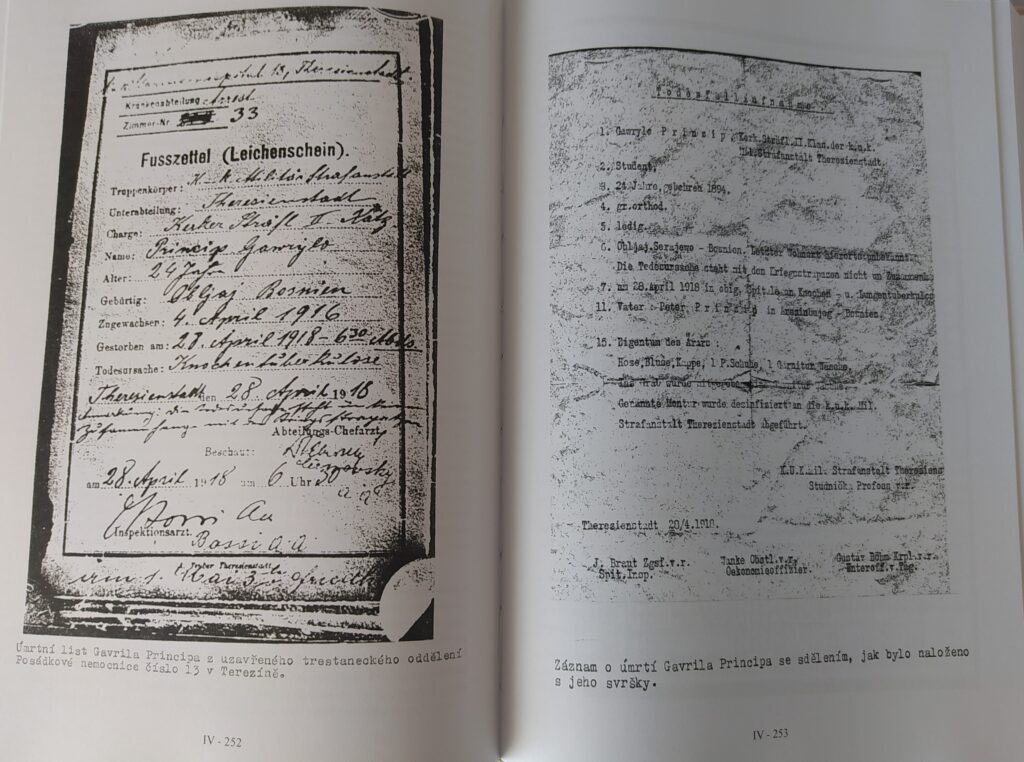 k.u.k. Garnisonsspital 13, Theresienstadt
Krankenabteilung Arrest
Zimmer-Nr. 33
Fusszettel (Leichenschein).
Truppenkörper: K.u.k. Militärstrafanstalt
Unterabteilung: Theresienstadt
Charge: Kerker Sträfl. II
Name: Princip Gawrylo
Alter: 24 Jahre
Gebürtig: Obljaj Bosnien
Zugewachsen: 4. April 1916
Gestorben am: 28. April 1918 - 6 30 Abds.
Todesursache: Knochentuberkulose
Theresienstadt den 28. April 1918
Abteilungs-Chefarzt
Beschaut:
am 28. April 1918 um 6 Uhr 30
Inspektionsarzt.
Bossi
am 1. Mai
Úmrtní list Gavrila Principa z uzavřeného trestaneckého oddělení
Posádkové nemocnice číslo 13 v Terezíně.
IV - 252
Todesfallaufnahme
1. Gawrylo Prinzip, Kerk.Sträfl.II.Klas.der k.u.k.
Mil.Strafanstalt Theresienstadt.
2. Student,
3. 24 Jahre, geboren 1894,
4. gr.orthod.
5. ledig.
6. Obljaj,Serajewo - Bosnien, Letzter Wohnort hierorts unbekannt.
Die Todesursache steht mit den Kriegsstrapazen nicht im Zusammenh
7. am 28.April 1918 in obig. Spitale an Knochen - u. Lungentuberkulos
11. Vater - Peter, Prinzip in
15. Eigentum des Ärars :
Hose,Bluse,Kappe, 1 P.Schuhe, 1 Garnitur Wäsche.
Genannte Montur wurde desinfiziert an die k.u.k.Mil.
Strafanstalt Theresienstadt abgeführt.
K.U.K.Mil. Strafanstalt Theresiens
Studnička Profoss v.r.
Theresienstadt 28/4.1918.
J. Braut Zgsf.v.r.
Spit.Insp.
Janke Obstl.v.r.
Oekonomieoffizier.
Gustav Böhm Krpl.v.r.
Unteroff.v.Tag.
Záznam o úmrtí Gavrila Principa se sdělením, jak bylo naloženo
s jeho svršky.
IV - 253